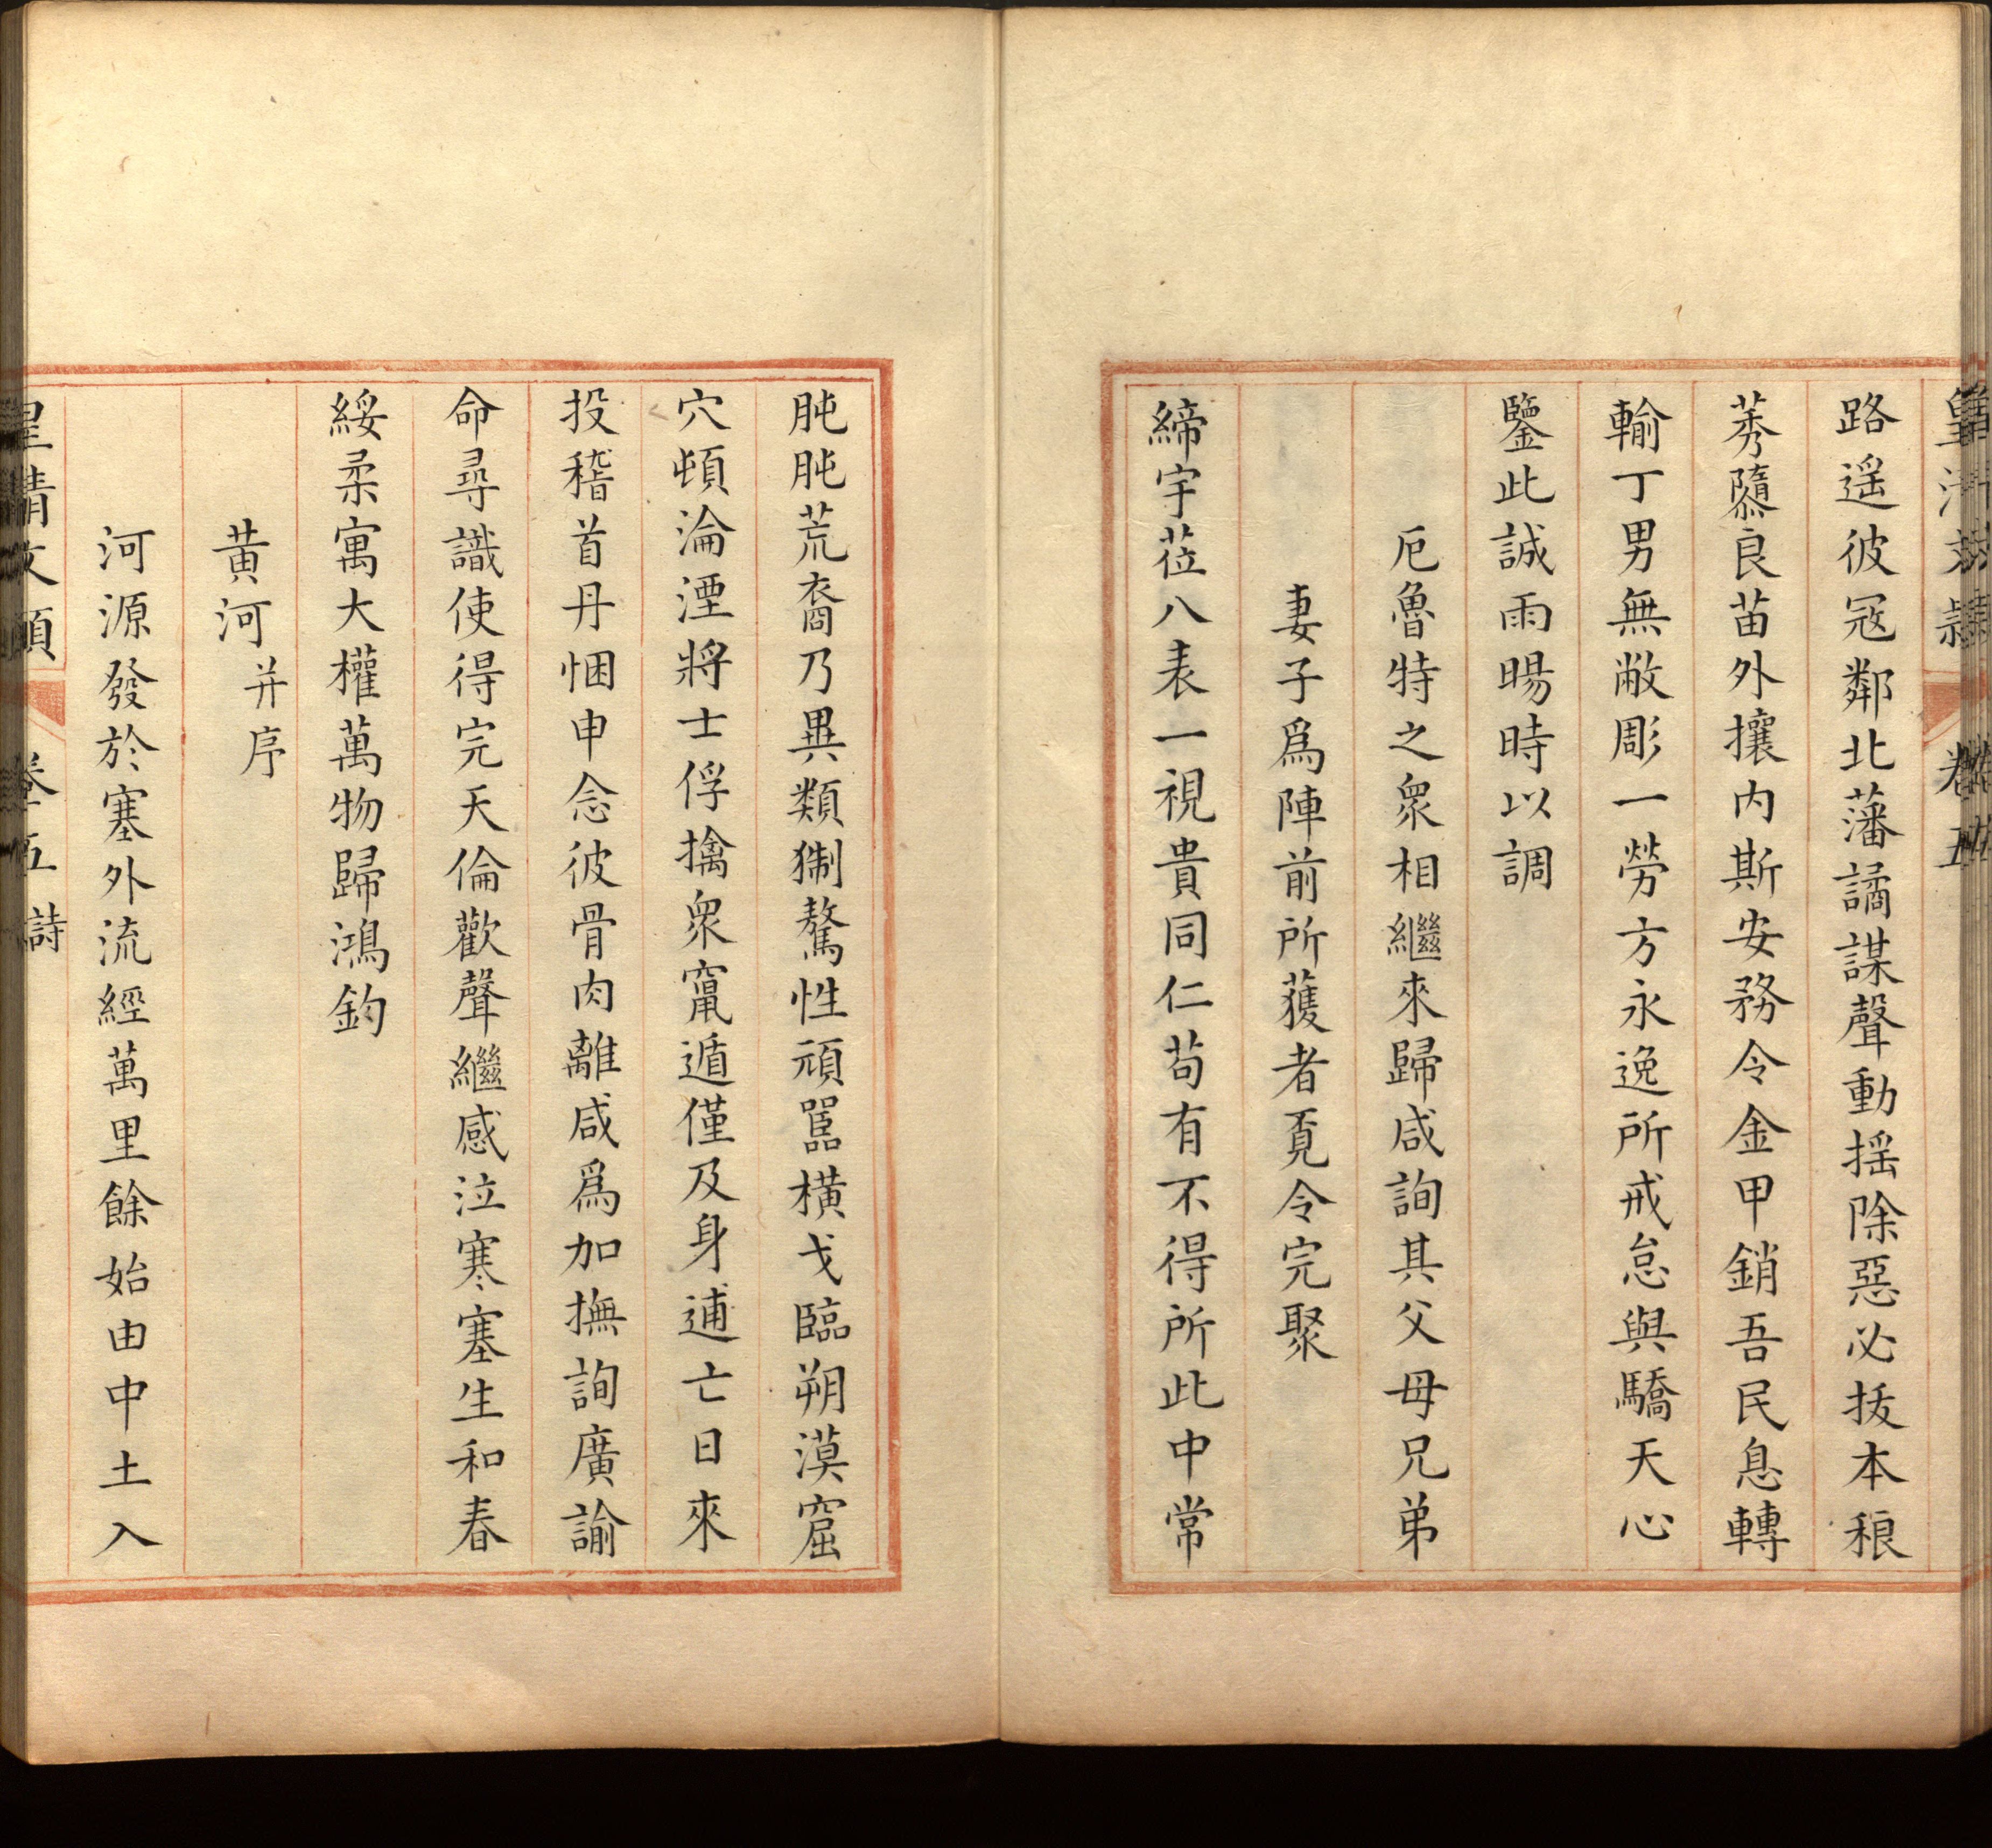 皇清文穎　卷五
路遥彼冦鄰北藩譎謀聲動摇除惡必拔本稂
莠隳良苗外攘内斯安務令金甲銷吾民息轉
輸丁男無敝彫一勞方永逸所戒怠與驕天心
鑒此誠雨暘時以調
厄魯特之衆相繼來歸咸詢其父母兄弟
妻子爲陣前所獲者覔令完聚
締宇莅八表一視貴同仁苟有不得所此中常
肫肫荒裔乃異類猘驁性頑嚚横戈臨朔漠窟
穴頓淪湮將士俘擒衆竄遁僅及身逋亡日來
投稽首丹悃申念彼骨肉離咸爲加撫詢廣諭
命尋識使得完天倫歡聲繼感泣寒塞生和春
綏柔寓大權萬物歸鴻鈞
黄河并序
河源發於塞外流經萬里餘始由中土入
皇清文穎　卷五 詩